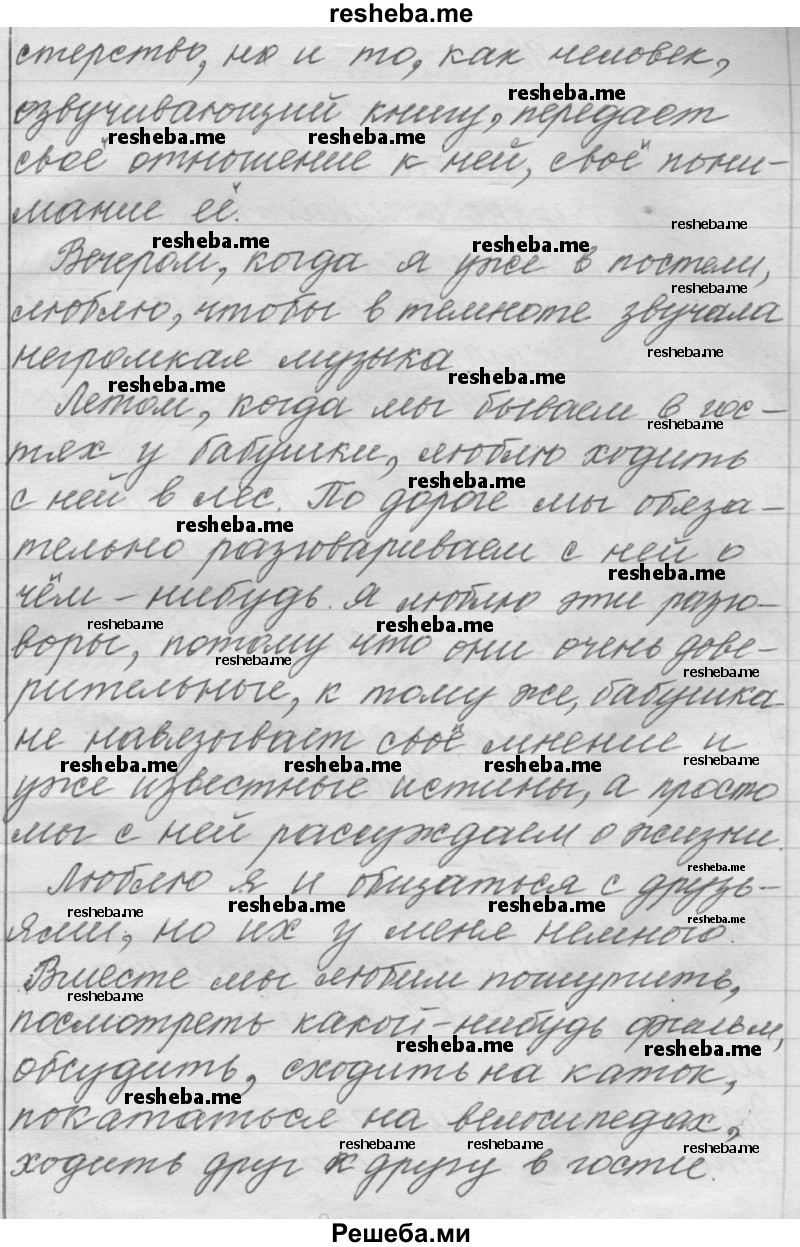 resheba.me
стерство, но и то, как человек,
озвучивающий книгу, передает
своё отношение к ней, своё пони-
мание её.
Вечером, когда я уже в постели,
люблю, чтобы в темноте звучала
негромкая музыка
Летом, когда мы бываем в гос-
тях у бабушки, люблю ходить
с ней в лес. По дороге мы обяза-
тельно разговариваем с ней о
чём-нибудь. Я люблю эти разго-
воры, потому что они очень дове-
рительные, к тому же, бабушка
не навязывает своё мнение и
уже известные истины, а просто
мы с ней рассуждаем о жизни.
Люблю я и общаться с друзь-
ями, но их у меня немного.
Вместе мы любим пошутить,
посмотреть какой-нибудь фильм,
обсудить, сходить на каток,
покататься на велосипедах,
ходить друг к другу в гости.
Решеба.ми